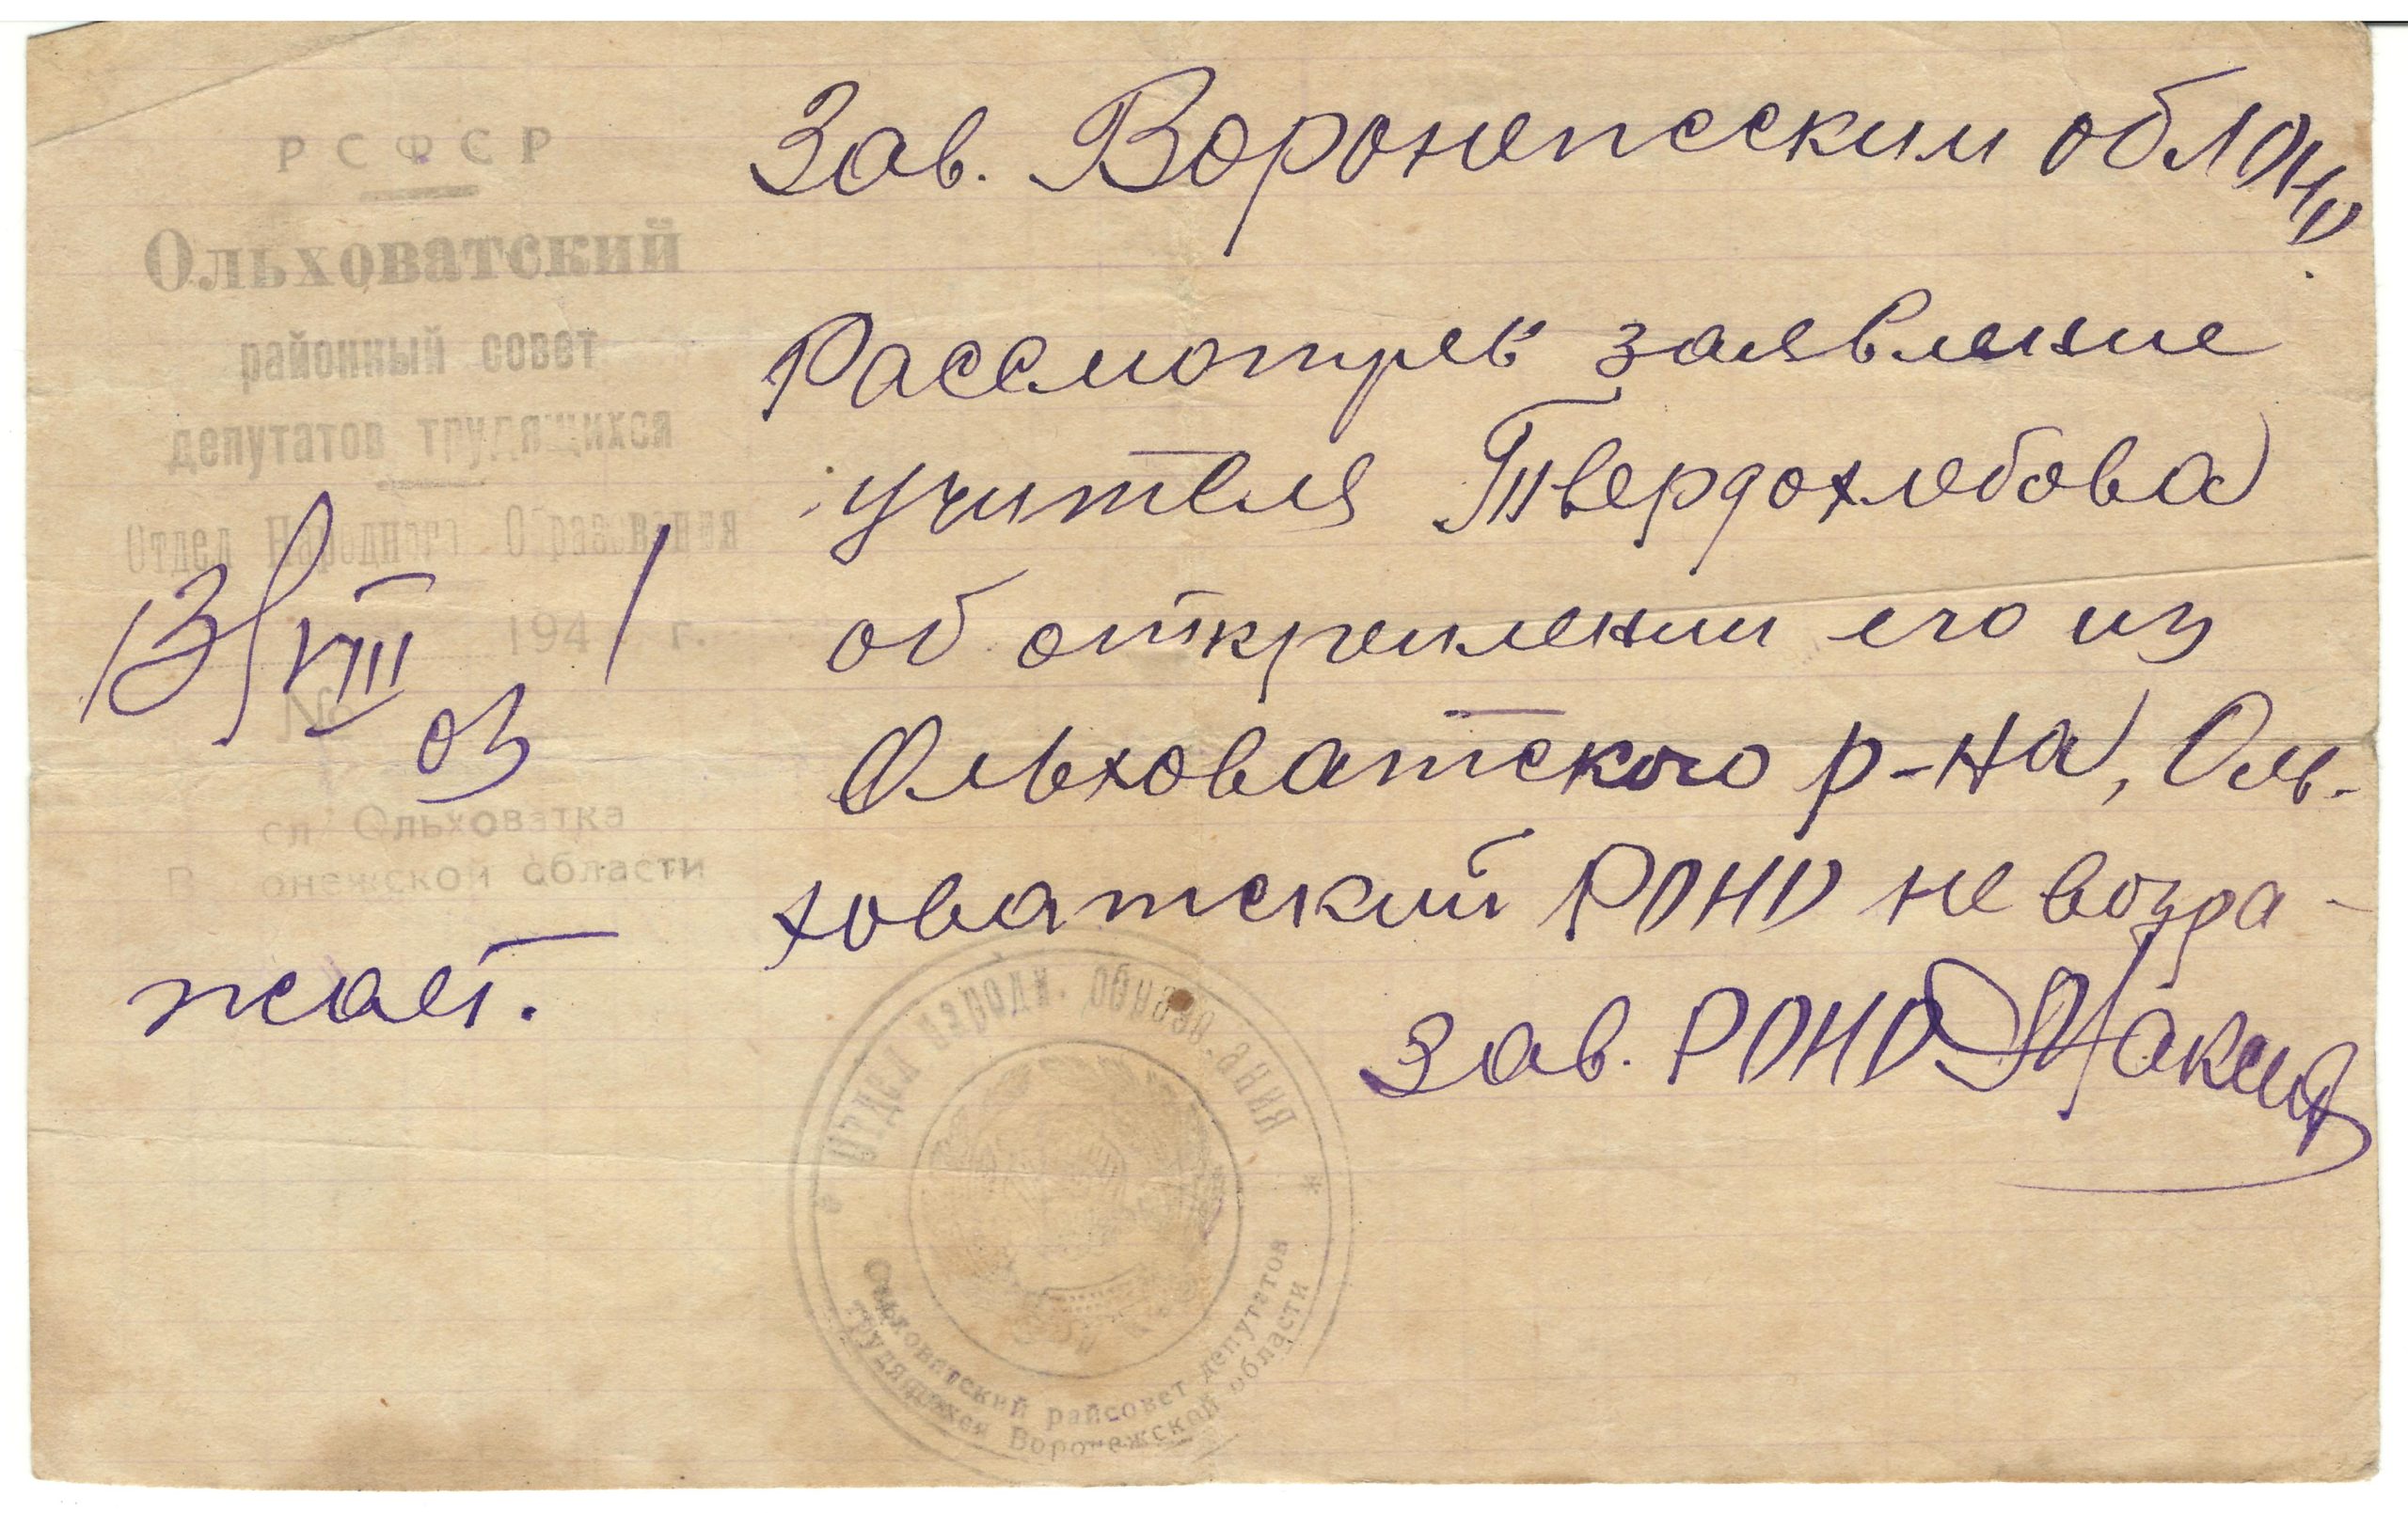 РСФСР
Ольховатский
районный совет
депутатов трудящихся
Отдел Народного Образования
13/VIII 1941 г.
№ 03
сл. Ольховатка
В онежской области
Зав. Воронежским облОНО.
Рассмотрев заявление
учителя Твердохлебова
об откреплении его из
Ольховатского р-на, Оль-
ховатский РОНО не возра-
жает.
Зав. РОНО
Отдел народн. образования
Ольховатский райсовет депутатов
трудящихся Воронежской области